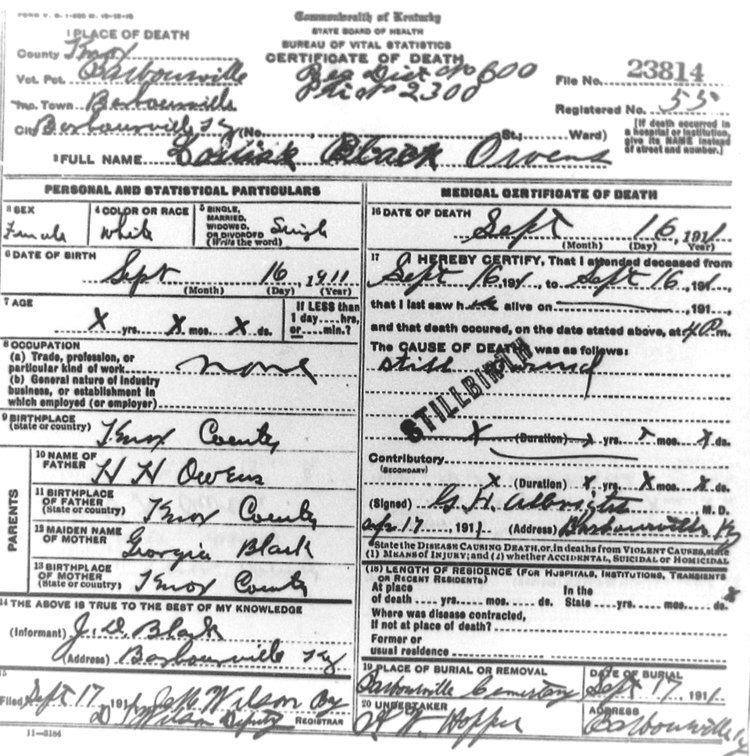 FORM V. S. 1-500 M. 10-12-10
Commonwealth of Kentucky
STATE BOARD OF HEALTH
BUREAU OF VITAL STATISTICS
CERTIFICATE OF DEATH
1 PLACE OF DEATH
County Knox
Vot. Pct. Barbourville
Inc. Town Barbourville
City Barbourville Ky (No. St.; Ward)
Reg Dist No 600
2300
File No. 23814
Registered No. 55
[If death occurred in a hospital or institution, give its NAME instead of street and number.]
2 FULL NAME Black Owens
PERSONAL AND STATISTICAL PARTICULARS
3 SEX Female
4 COLOR OR RACE White
5 SINGLE, MARRIED, WIDOWED, OR DIVORCED (Write the word) Single
6 DATE OF BIRTH
Sept 16 1911
(Month) (Day) (Year)
7 AGE
X yrs. X mos. X ds.
If LESS than 1 day....hrs, or....min.?
8 OCCUPATION
(a) Trade, profession, or particular kind of work none
(b) General nature of industry business, or establishment in which employed (or employer)
9 BIRTHPLACE
(State or country) Knox County
PARENTS
10 NAME OF FATHER H H Owens
11 BIRTHPLACE OF FATHER (State or country) Knox County
12 MAIDEN NAME OF MOTHER Georgia Black
13 BIRTHPLACE OF MOTHER (State or country) Knox County
14 THE ABOVE IS TRUE TO THE BEST OF MY KNOWLEDGE
(Informant) J. D. Black
(Address) Barbourville Ky
15
Filed Sept 17 1911 Wilson By
Wilson Deputy REGISTRAR
11-3184
MEDICAL CERTIFICATE OF DEATH
16 DATE OF DEATH
Sept 16 1911
(Month) (Day) (Year)
17 I HEREBY CERTIFY, That I attended deceased from
Sept 16 1911, to Sept 16, 1911
that I last saw h alive on 191
and that death occured, on the date stated above, at 4 P.m.
The CAUSE OF DEATH was as follows:
still
STILLBIRTH
X (Duration) x yrs. x mos. X ds.
Contributory
(SECONDARY)
X (Duration) X yrs. X mos. X ds.
(Signed) G. H. Albright M. D.
17 1911 (Address) Barbourville, Ky
State the DISEASE CAUSING DEATH, or, in deaths from VIOLENT CAUSES, state (1) MEANS OF INJURY; and (2) whether ACCIDENTAL, SUICIDAL or HOMICIDAL
(18) LENGTH OF RESIDENCE (FOR HOSPITALS, INSTITUTIONS, TRANSIENTS OR RECENT RESIDENTS)
At place of death yrs. mos. ds. In the State yrs. mos. ds.
Where was disease contracted,
If not at place of death?
Former or
usual residence
19 PLACE OF BURIAL OR REMOVAL Barbourville Cemetery
DATE OF BURIAL Sept 17 1911
20 UNDERTAKER Hopper
ADDRESS Barbourville